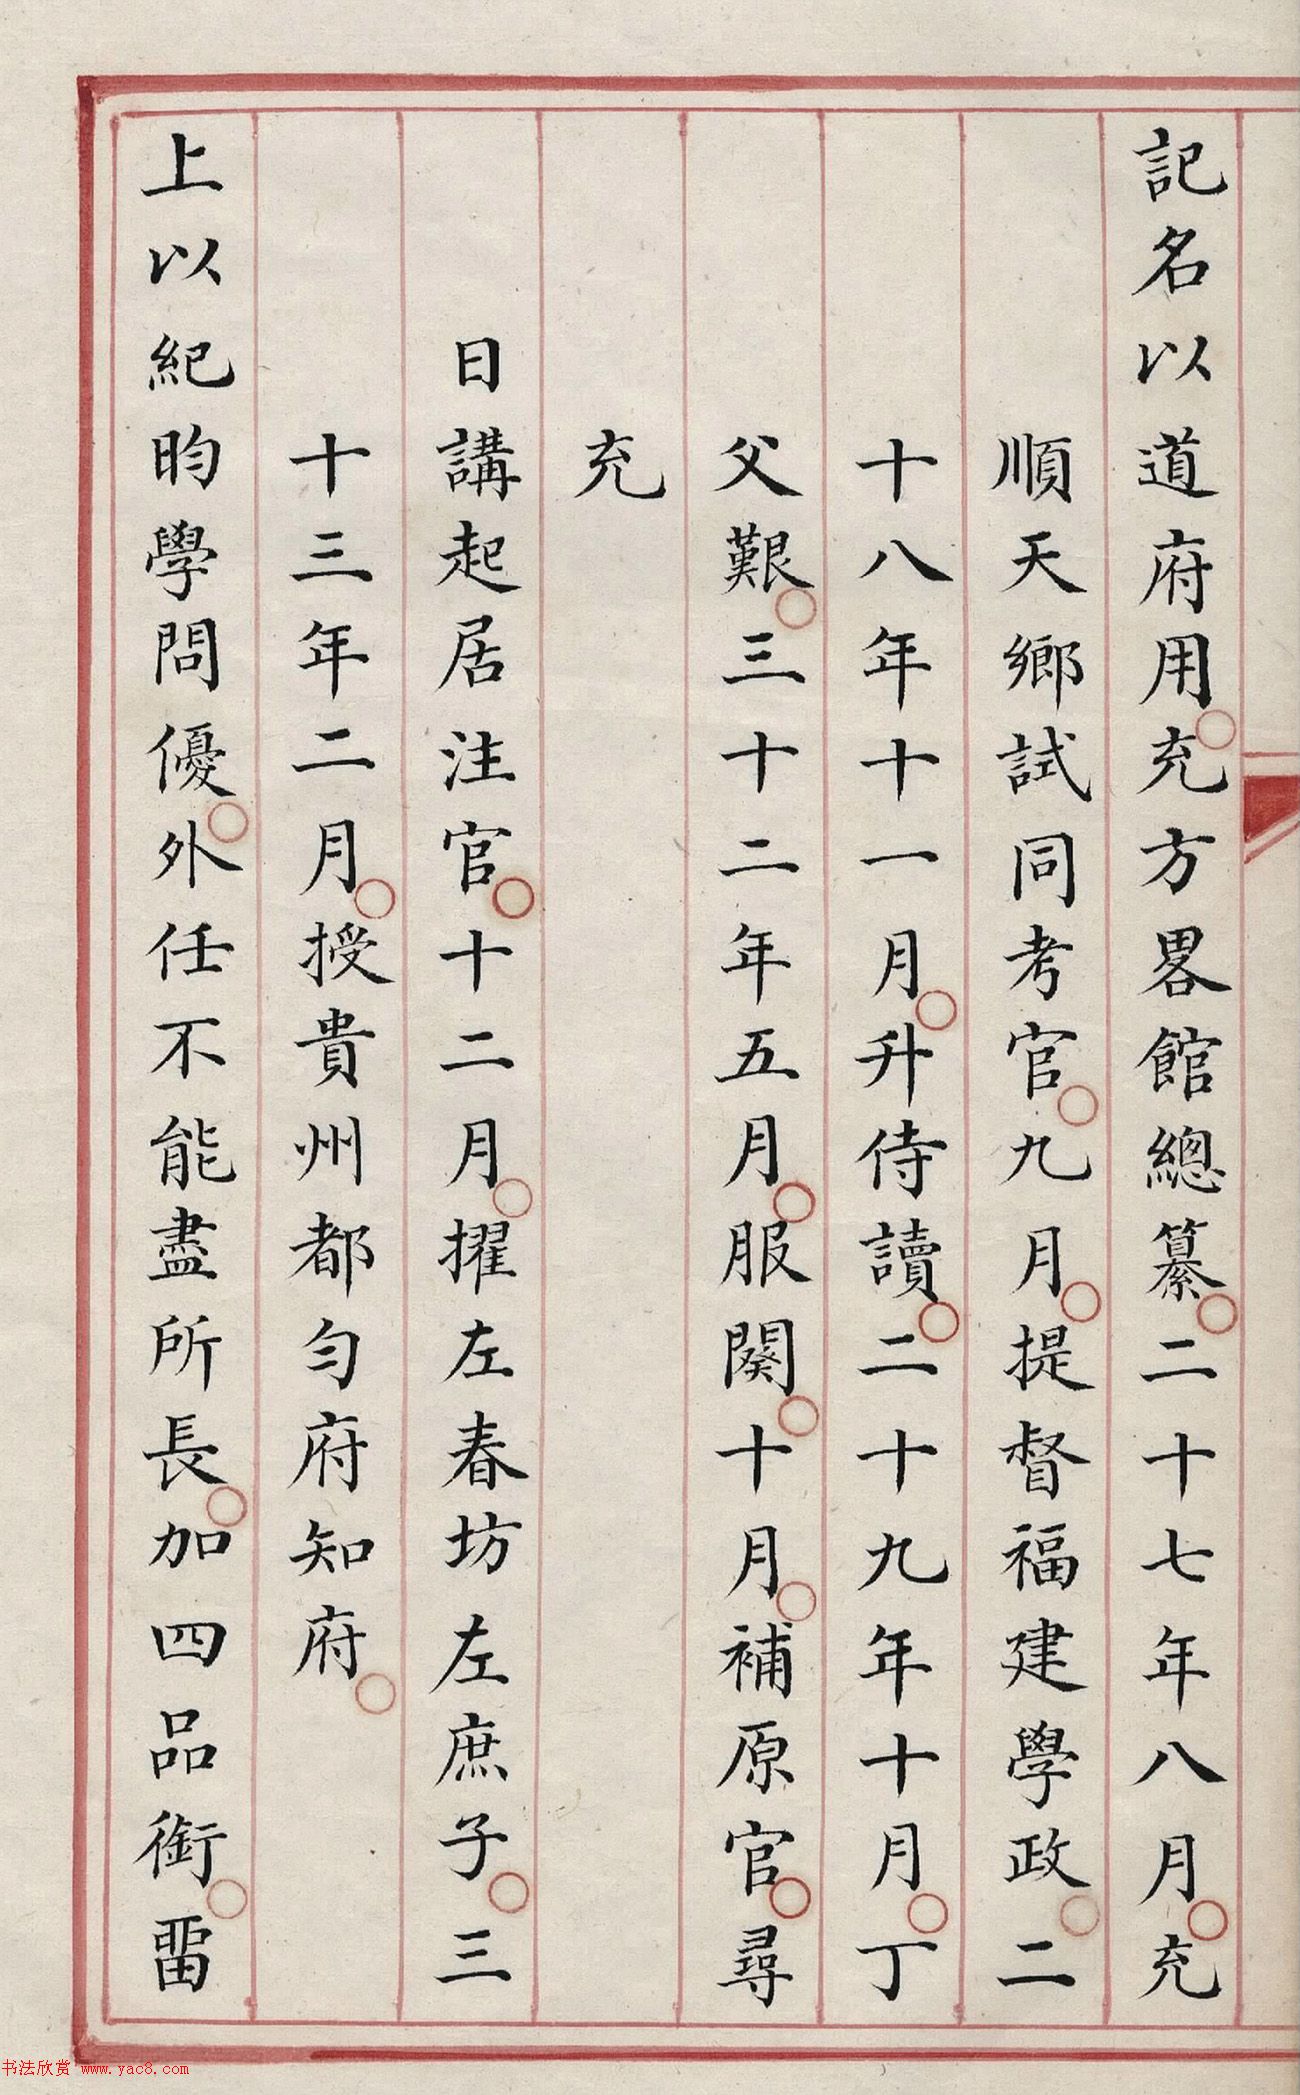 記名以道府用充方畧館總纂二十七年八月充
順天鄉試同考官九月提督福建學政二
十八年十一月升侍讀二十九年十月丁
父艱三十二年五月服闋十月補原官尋
充
日講起居注官十二月擢左春坊左庶子三
十三年二月授貴州都勻府知府
上以紀昀學問優外任不能盡所長加四品銜畱
书法欣赏 www.yac8.com